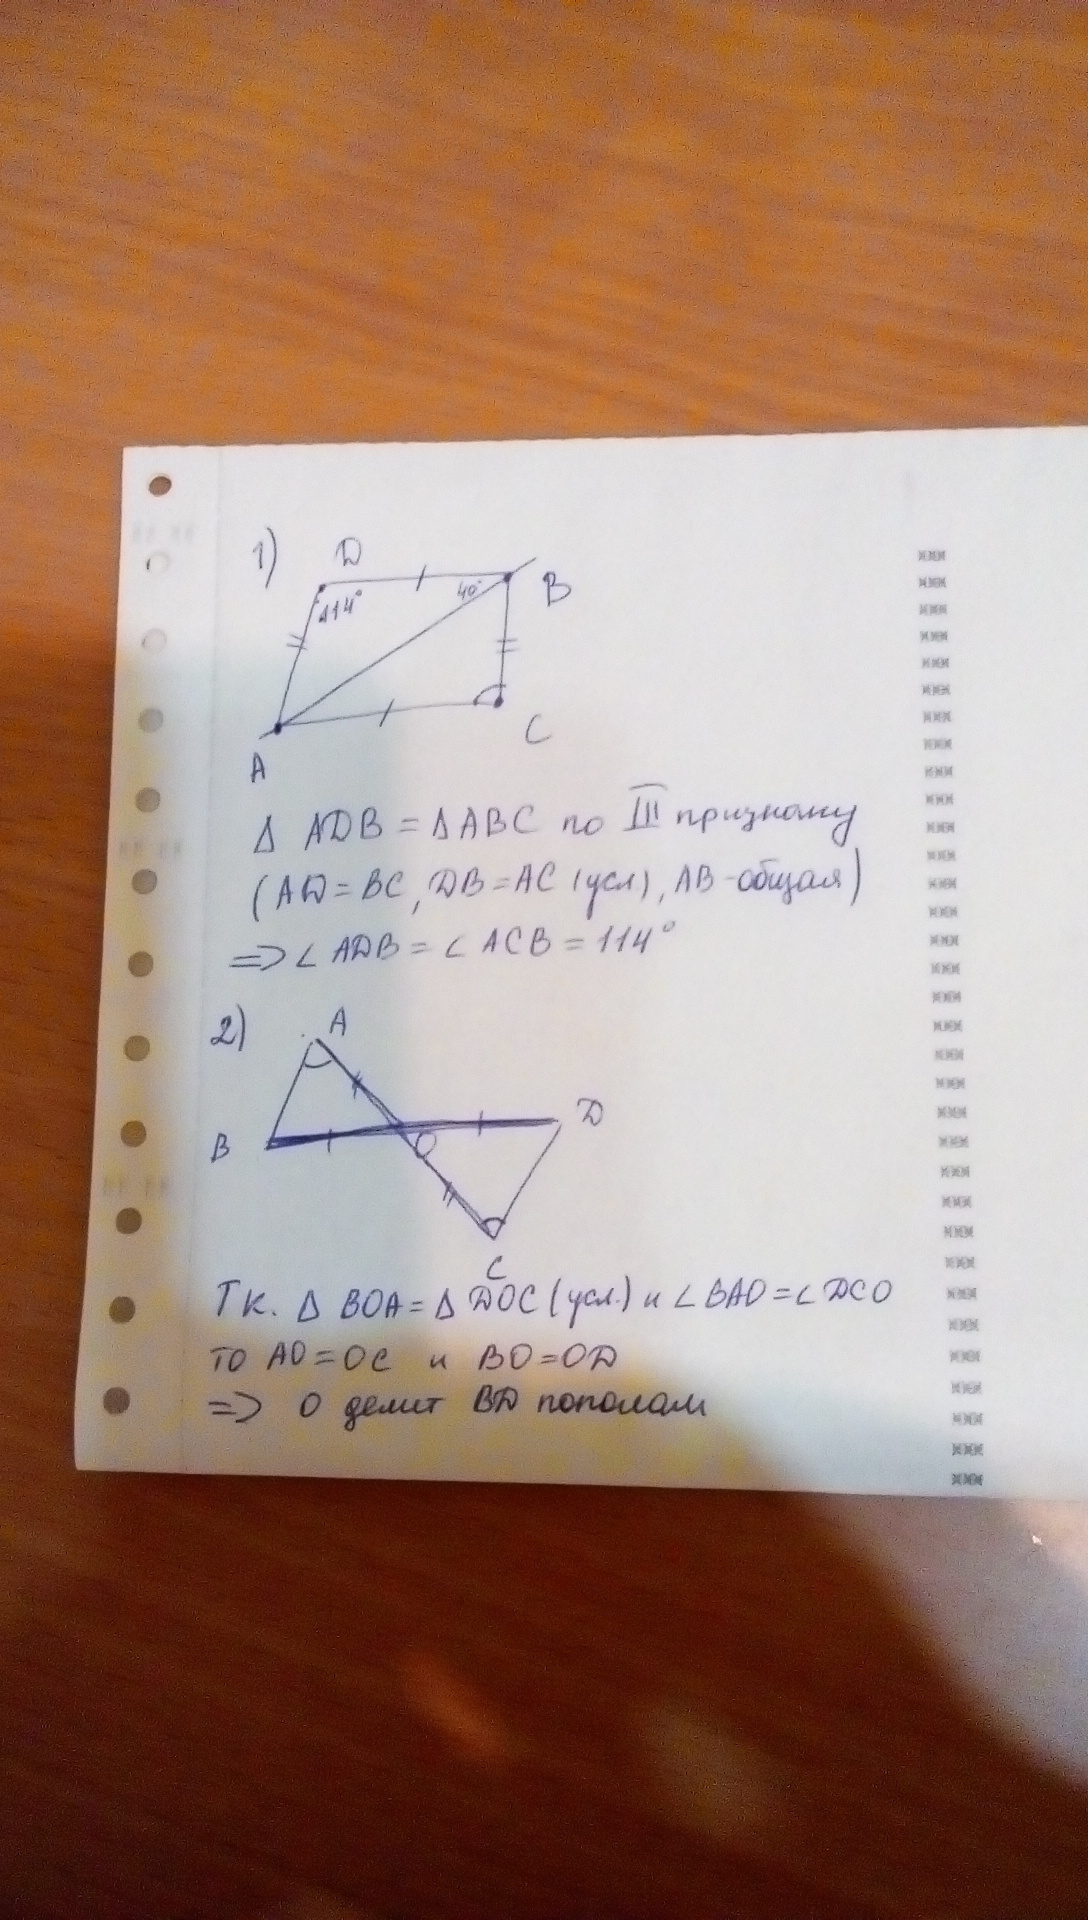 1)
D
B
114°
40°
C
A
Δ ADB = Δ ABC по III признаку
(AD = BC, DB = AC (усл), AB - общая)
=> ∠ ADB = ∠ ACB = 114°
2)
A
D
B
O
C
Тк. Δ BOA = Δ DOC (усл.) и ∠ BAO = ∠ DCO
то AO = OC и BO = OD
=> O делит BD пополам